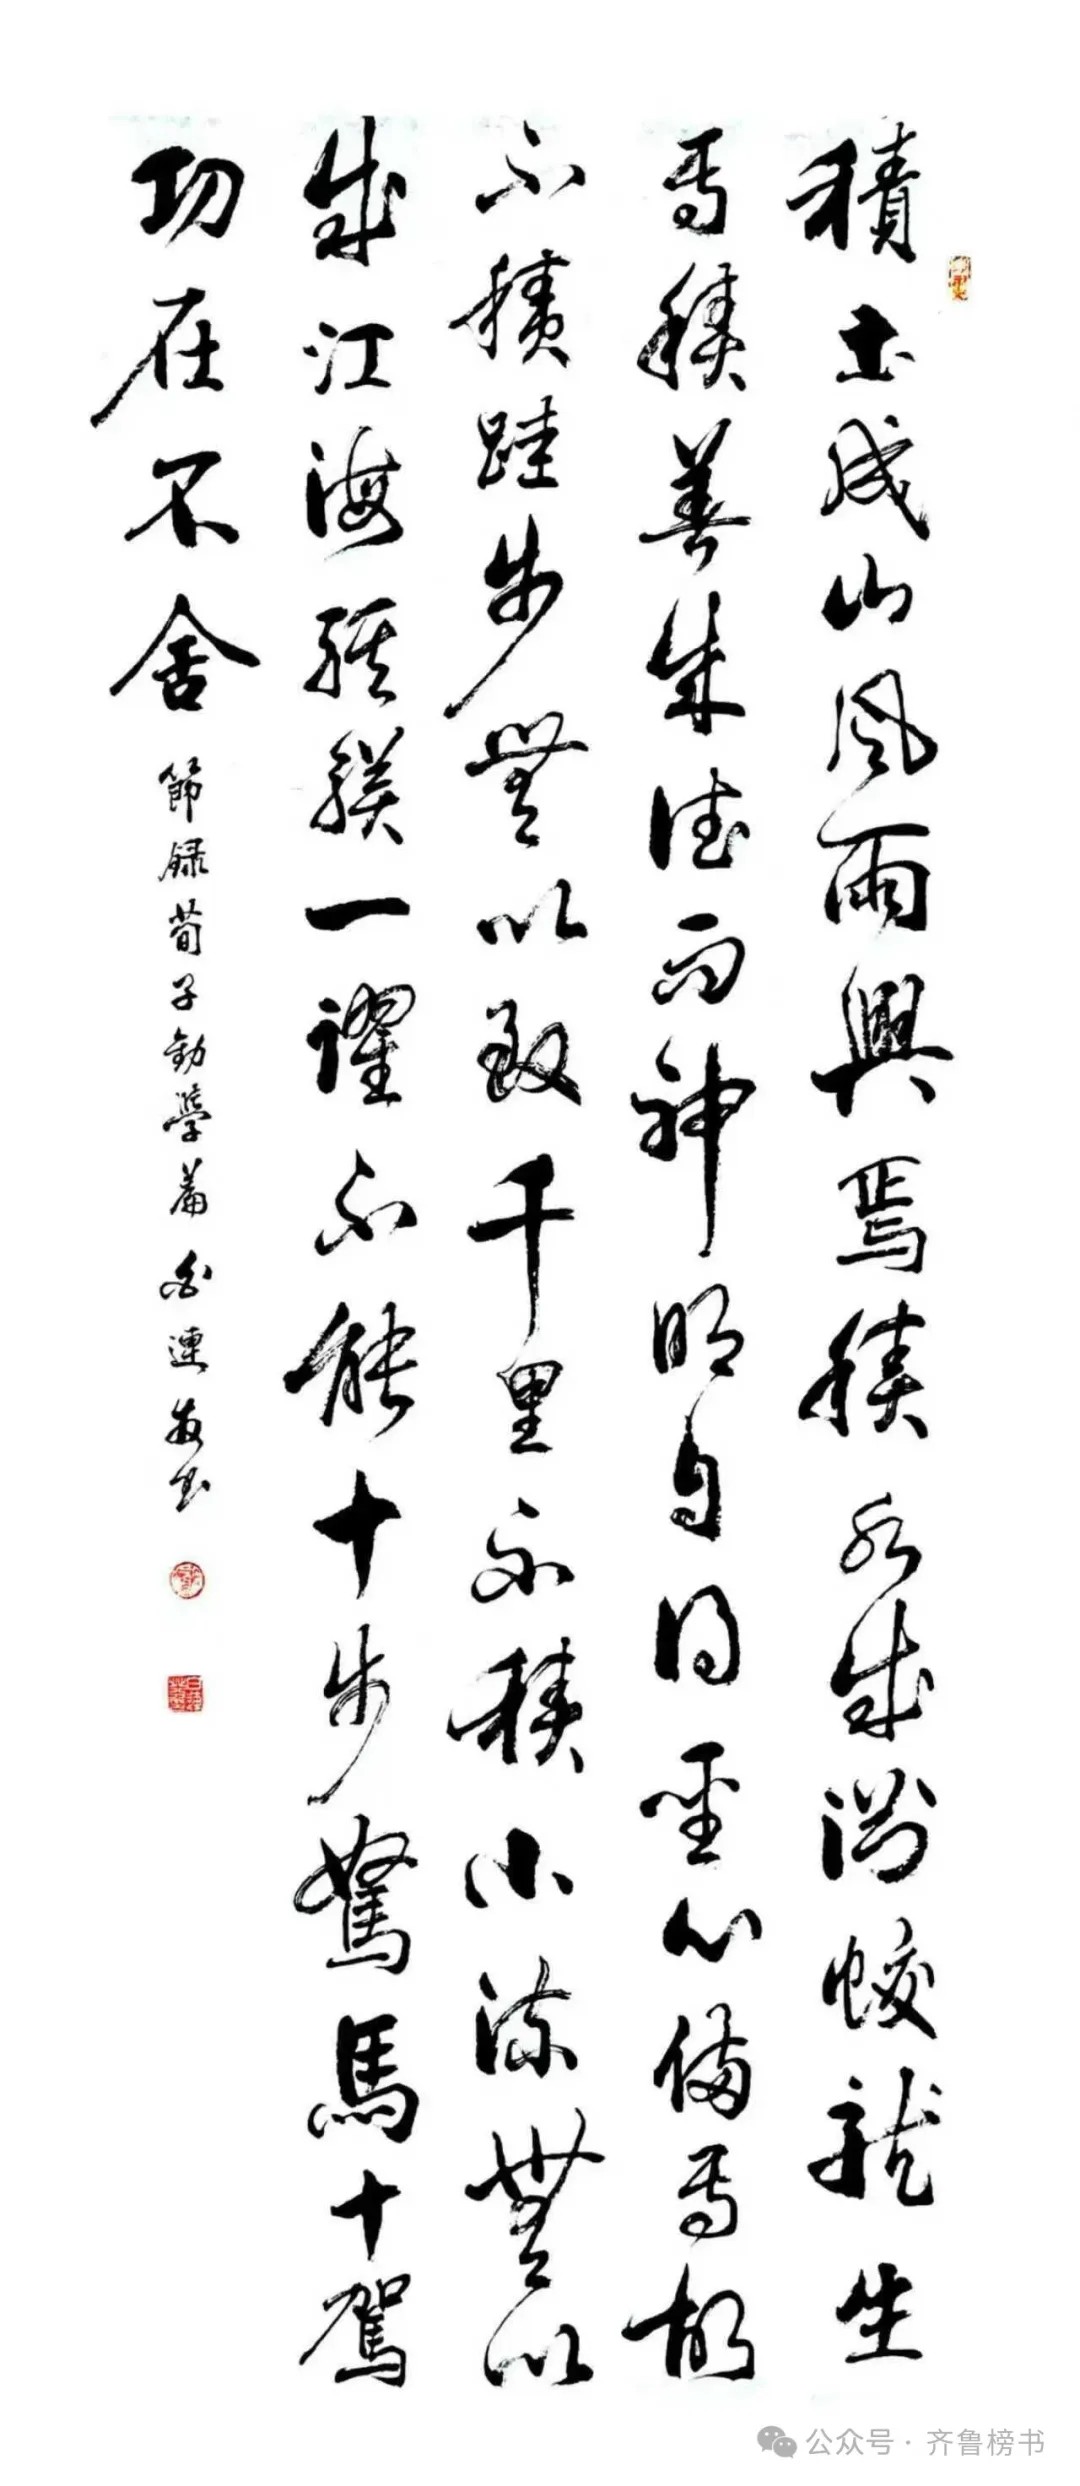 積土成山風雨興焉積水成淵蛟龍生
焉積善成德而神明自得聖心備焉故
不積跬步無以致千里不積小流無以
成江海騏驥一躍不能十步駑馬十駕
功在不舍
節録荀子勸學篇 連 书
公众号·齐鲁榜书